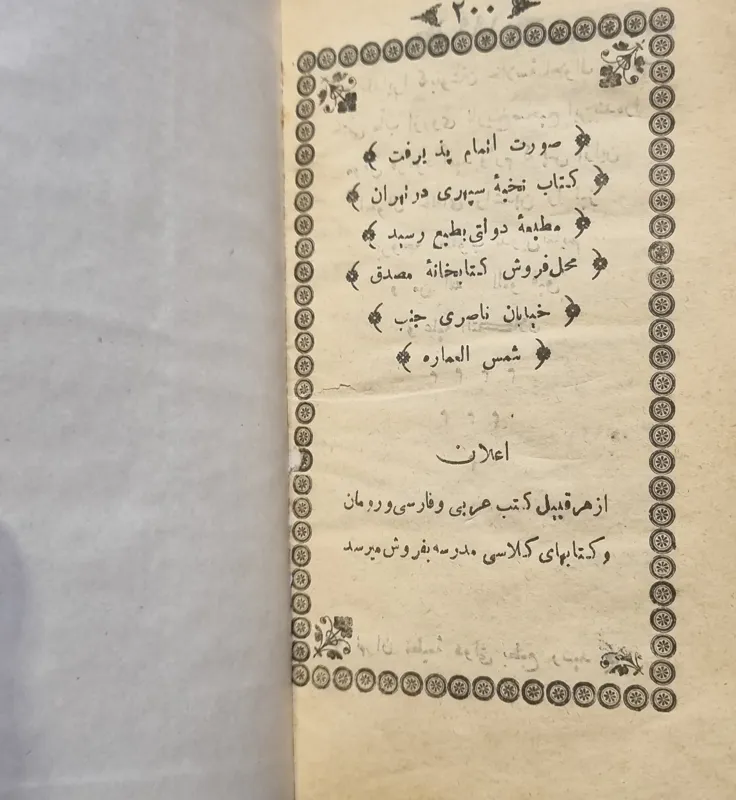 ۲۰۰
صورت اتمام پذیرفت
کتاب نخبهٔ سپهری در تهران
مطبعهٔ دولتی بطبع رسید
محل فروش کتابخانهٔ مصدق
خیابان ناصری جنب
شمس العماره
اعلان
از هر قبیل کتب عربی و فارسی و رومان
و کتابهای کلاسی مدرسه بفروش میرسد